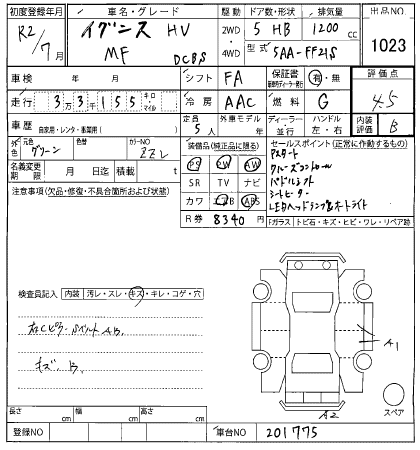 初度登録年月 車名・グレード 駆動 ドア数・形状 排気量 出品NO
R2/7月 イグニス HV 2WD・4WD 5 HB 1200 cc 1023
MF DCBS 型式 5AA-FF21S
車検 年 月 シフト FA 保証書 有・無 評価点
走行 33155 キロ・マイル 冷房 AAC 燃料 G 4.5
車歴 自家用・レンタ・事業用( ) 定員 5人 外車モデル 年 ディーラー・並行 ハンドル 左・右 内装評価 B
外色 元色 グリーン 色替 カラーNO ZZL
名義変更期限 月 日迄 積載 t
注意事項(欠品・修復・不具合箇所および状態)
装備品(純正品に限る)
PS PW AW
SR TV ナビ
カワ エアB ABS
R券 8340 円
セールスポイント(正常に作動するもの)
Pスタート
クルーズコントロール
パドルシフト
シートヒーター
LEDヘッドランプ&オートライト
Fガラス トビ石・キズ・ヒビ・ワレ・リペア跡
検査員記入 内装 汚レ・スレ・キズ・キレ・コゲ・穴
右Cピラー Sベルト AB.
キズ B.
A1
A2
スペア
長さ cm 幅 cm 高さ cm
登録NO 車台NO 201775